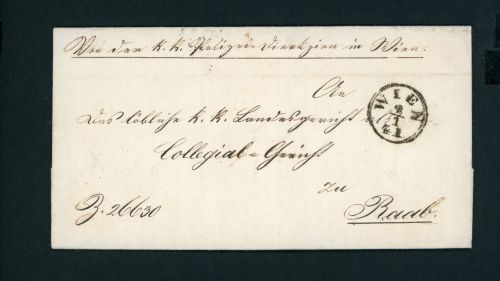 Von der k. k. Polizei Direktzion in Wien.
An
Das löbliche k. k. Landesgericht
Collegial-Gericht
zu
Z. 26630
Raab.
WIEN